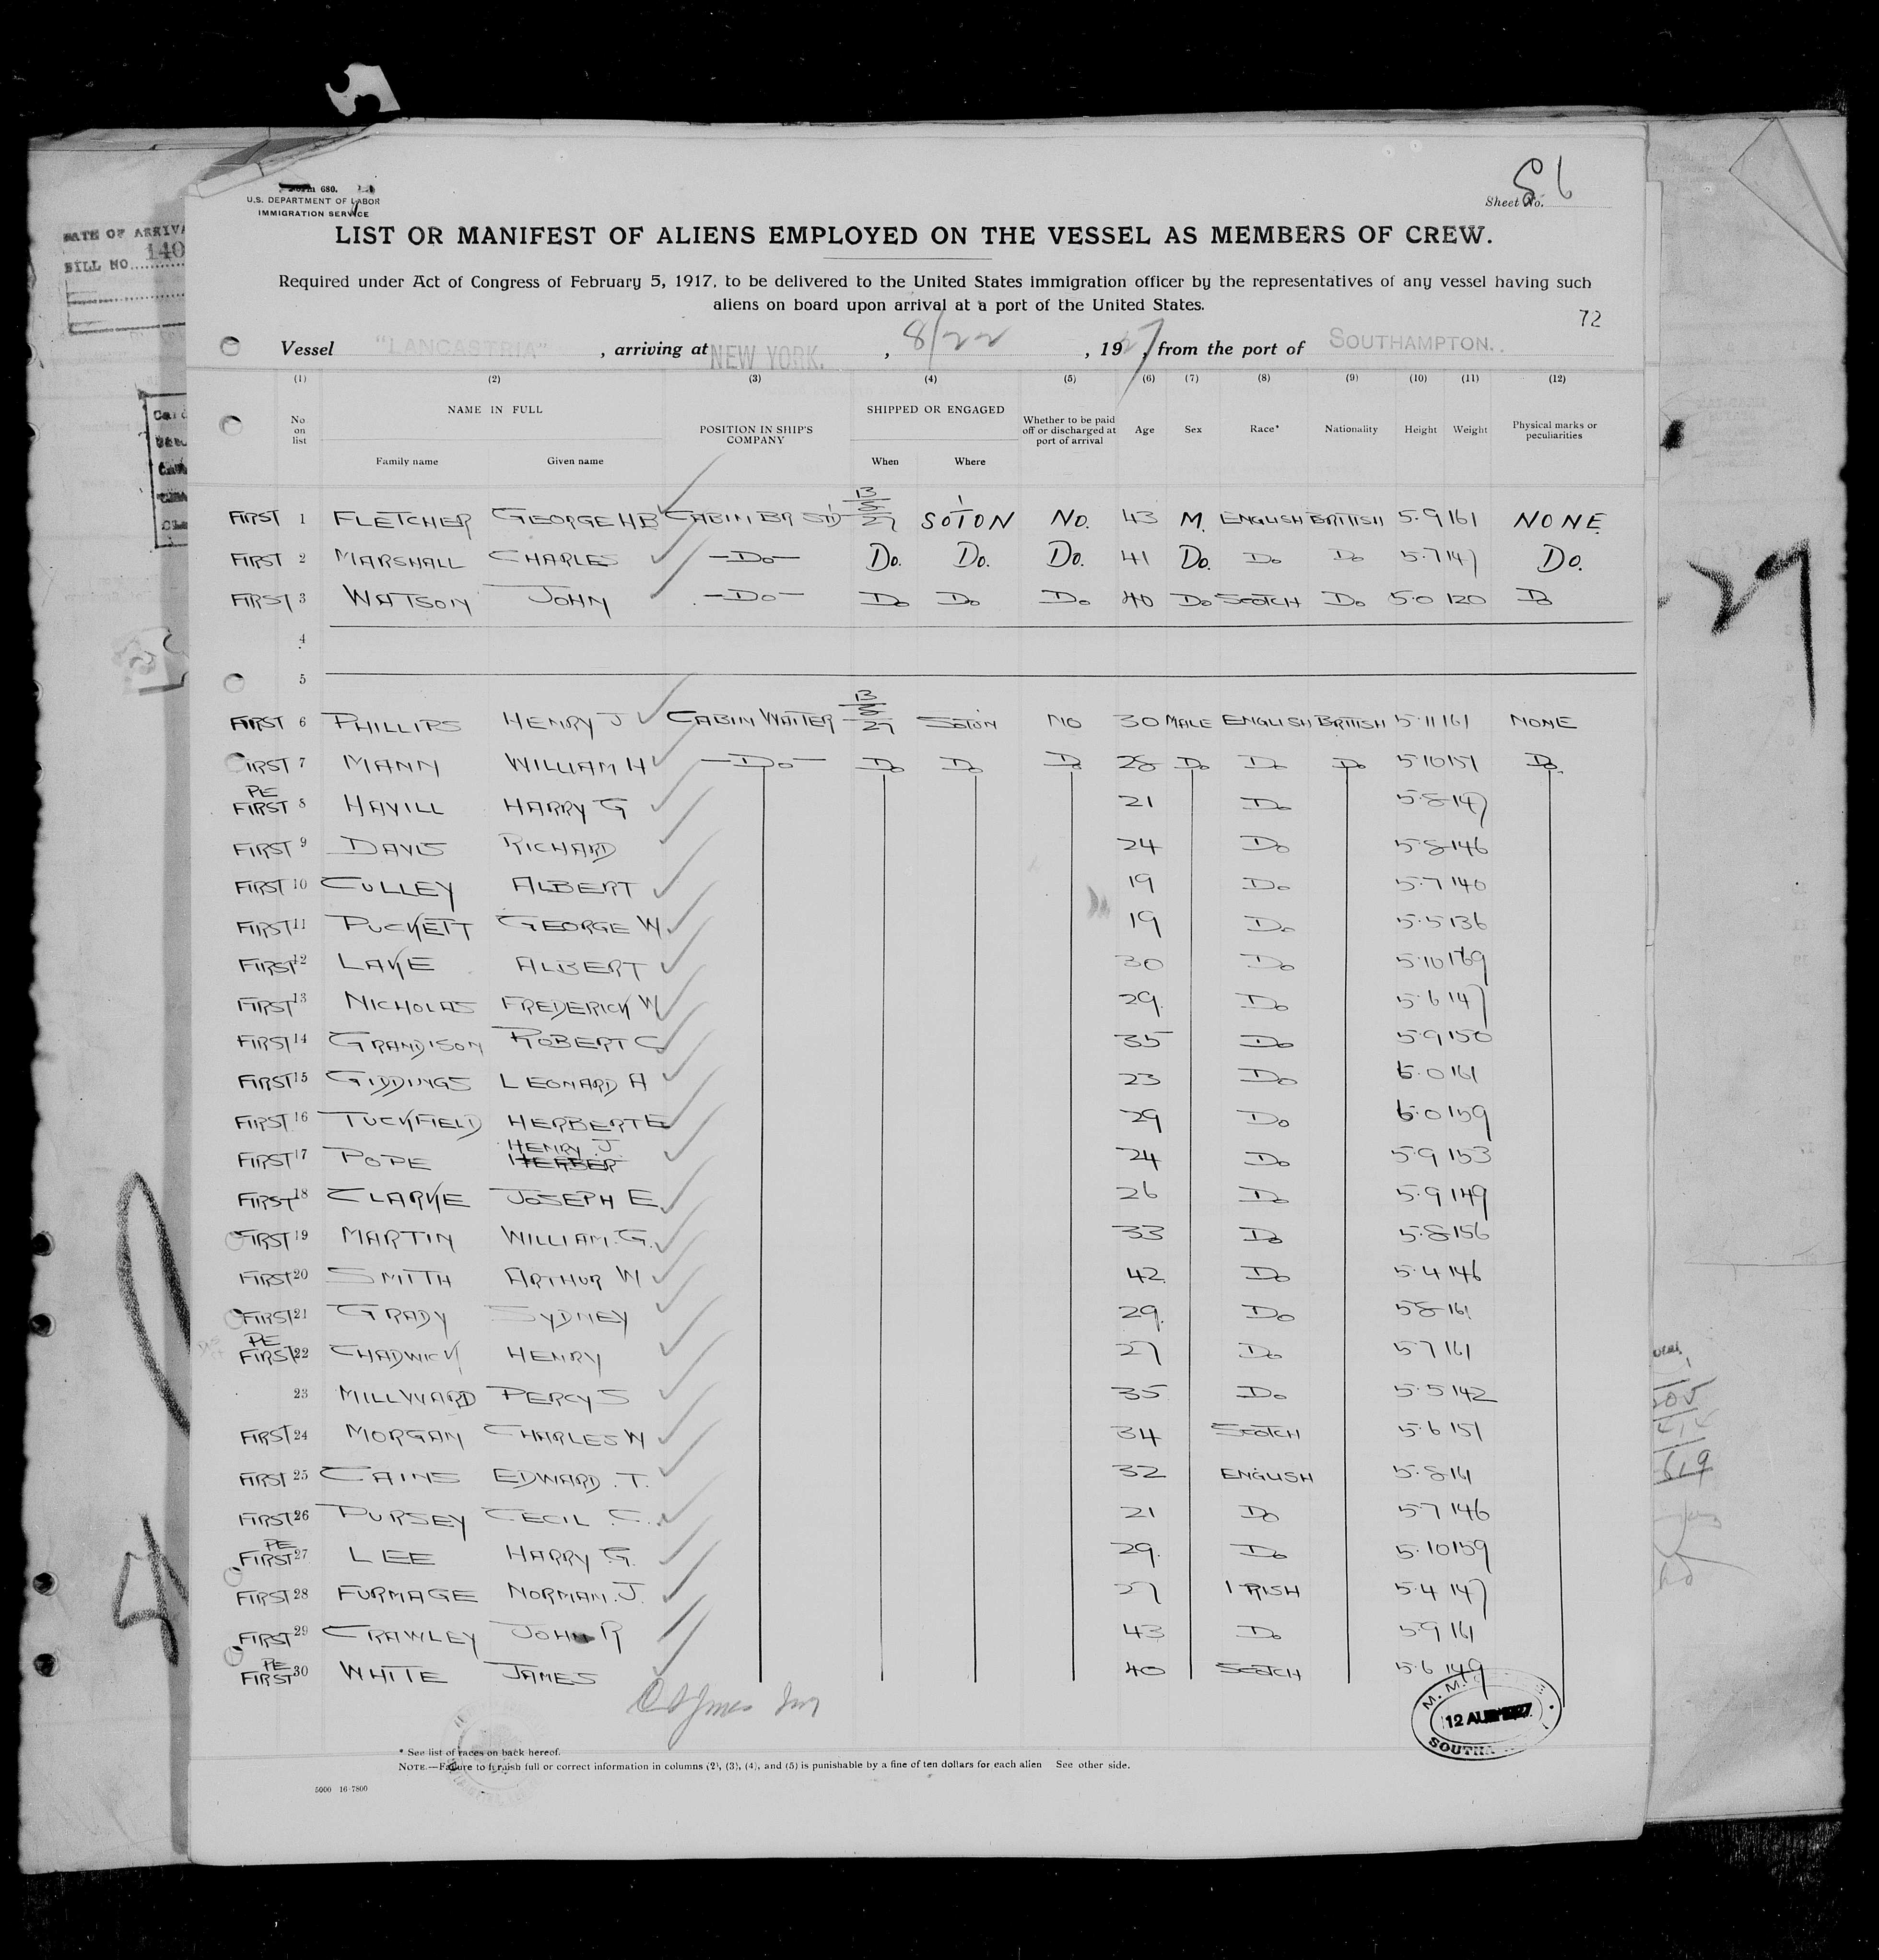 Form 680.
U.S. DEPARTMENT OF LABOR
IMMIGRATION SERVICE
Sheet No.
LIST OR MANIFEST OF ALIENS EMPLOYED ON THE VESSEL AS MEMBERS OF CREW.
Required under Act of Congress of February 5, 1917, to be delivered to the United States immigration officer by the representatives of any vessel having such
aliens on board upon arrival at a port of the United States.
72
Vessel "LANCASTRIA" , arriving at NEW YORK. , 8/22 , 1927, from the port of SOUTHAMPTON.
DATE OF ARRIVA
BILL NO. 140
(1) (2) (3) (4) (5) (6) (7) (8) (9) (10) (11) (12)
No on list NAME IN FULL POSITION IN SHIP'S COMPANY SHIPPED OR ENGAGED Whether to be paid off or discharged at port of arrival Age Sex Race* Nationality Height Weight Physical marks or peculiarities
Family name Given name When Where
FIRST 1 FLETCHER GEORGE H B CABIN BR STD 13/8/27 SOTON NO. 43 M. ENGLISH BRITISH 5.9 161 NONE.
FIRST 2 MARSHALL CHARLES —DO— DO. DO. DO. 41 DO. DO DO 5.7 147 DO.
FIRST 3 WATSON JOHN —DO— DO DO DO 40 DO SCOTCH DO 5.0 120 DO
4
5
FIRST 6 PHILLIPS HENRY J CABIN WAITER 13/8/27 SOTON NO 30 MALE ENGLISH BRITISH 5.11 161 NONE
FIRST 7 MANN WILLIAM H —DO— DO DO DO 28 DO DO DO 5.10 151 DO.
PE FIRST 8 HAVILL HARRY G 21 DO 5.8 147
FIRST 9 DAVIS RICHARD 24 DO 5.8 146
FIRST 10 CULLEY ALBERT 19 DO 5.7 140
FIRST 11 PUCKETT GEORGE W. 19 DO 5.5 136
FIRST 12 LAKE ALBERT 30 DO 5.10 169
FIRST 13 NICHOLAS FREDERICK W 29. DO 5.6 147
FIRST 14 GRANDISON ROBERT C 35 DO 5.9 150
FIRST 15 GIDDINGS LEONARD A 23 DO 6.0 161
FIRST 16 TUCKFIELD HERBERT E 29 DO 6.0 159
FIRST 17 POPE HENRY J. 24 DO 5.9 153
FIRST 18 CLARKE JOSEPH E. 26 DO 5.9 149
FIRST 19 MARTIN WILLIAM. G. 33 DO 5.8 156
FIRST 20 SMITH ARTHUR W 42. DO 5.4 146
FIRST 21 GRADY SYDNEY 29. DO 5.8 161
PE FIRST 22 CHADWICK HENRY 27 DO 5.7 161
23 MILLWARD PERCY S 35 DO 5.5 142
FIRST 24 MORGAN CHARLES W 34 SCOTCH 5.6 151
FIRST 25 CAINS EDWARD. T. 32 ENGLISH 5.8 161
FIRST 26 PURSEY CECIL. C. 21 DO 5.7 146
PE FIRST 27 LEE HARRY G. 29. DO 5.10 159
FIRST 28 FURMAGE NORMAN. J. 27 IRISH 5.4 147
FIRST 29 CRAWLEY JOHN R 43 DO 5.9 161
PE FIRST 30 WHITE JAMES 40 SCOTCH 5.6 149
12 AUG 1927
* See list of races on back hereof.
NOTE.—Failure to furnish full or correct information in columns (2), (3), (4), and (5) is punishable by a fine of ten dollars for each alien See other side.
5000 16-7800
29
619